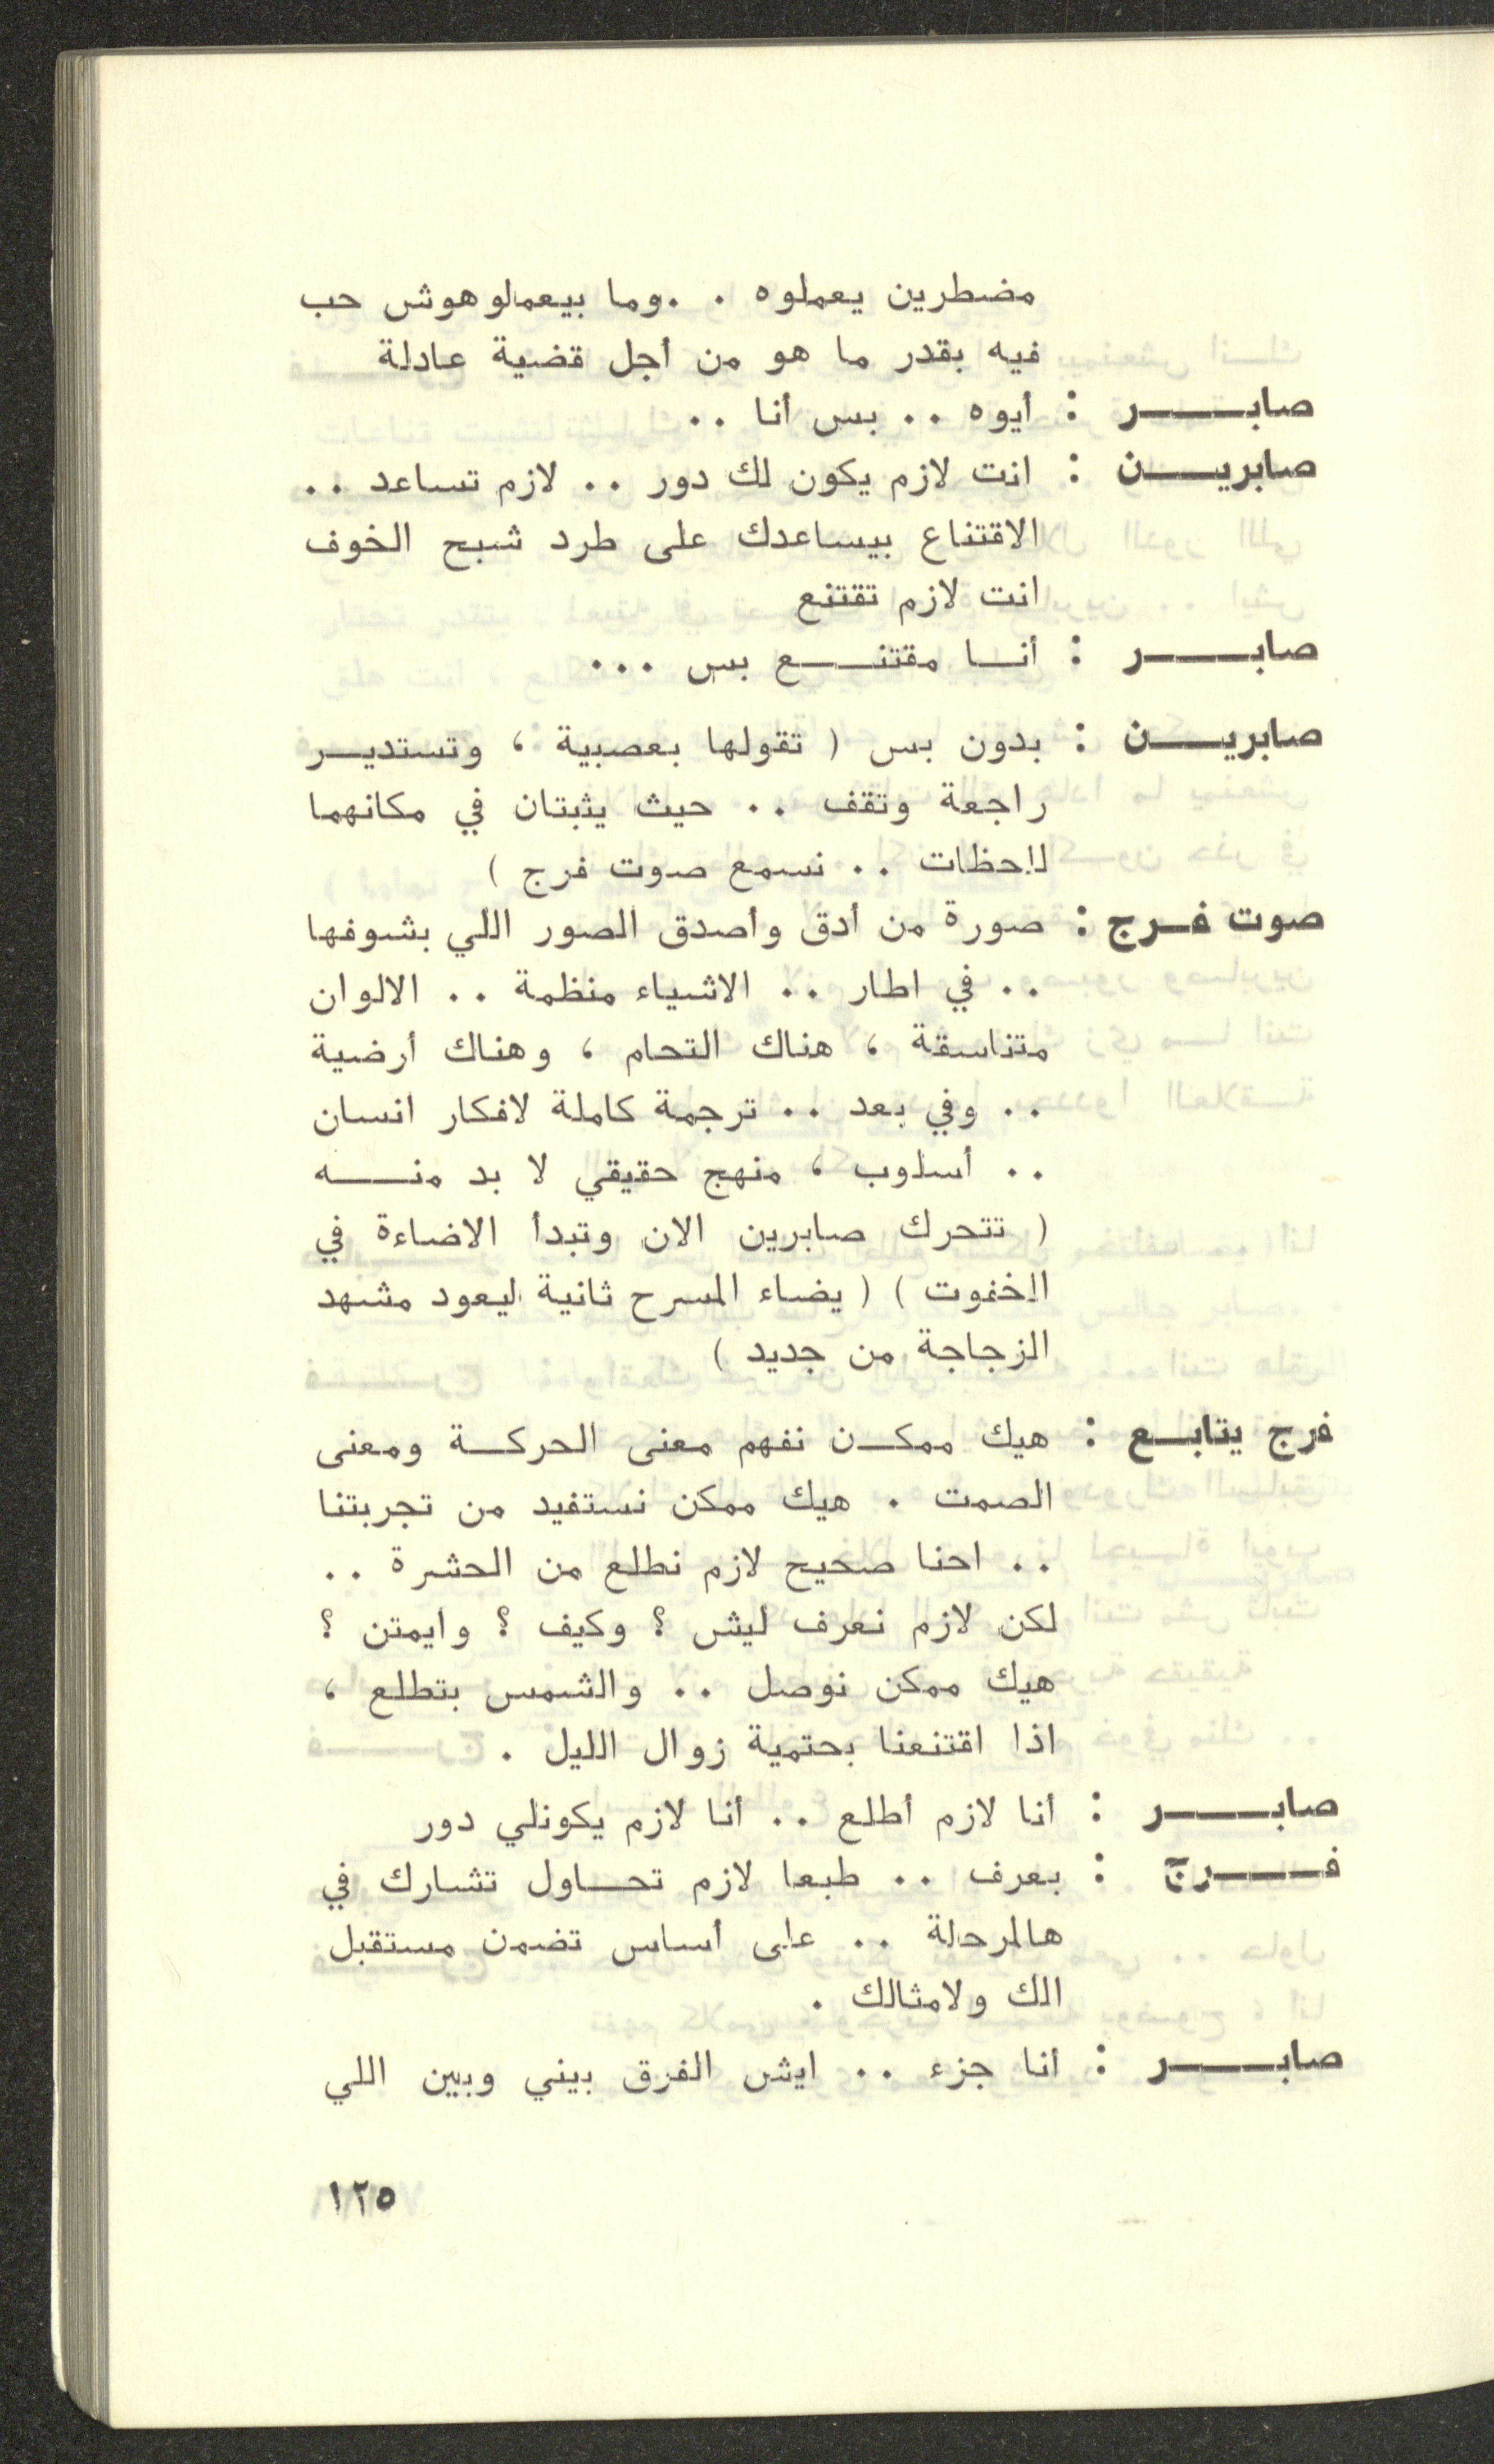 مضطرين يعملوه . .وما بيعملوهوش حب
فيه بقدر ما هو من أجل قضية عادلة
صابر : أيوه .. بس أنا ..
صابرين : انت لازم يكون لك دور .. لازم تساعد ..
الاقتناع بيساعدك على طرد شبح الخوف
انت لازم تقتنع
صابر : أنا مقتنع بس ...
صابرين : بدون بس ( تقولها بعصبية ، وتستدير
راجعة وتقف .. حيث يثبتان في مكانهما
لاحظات .. نسمع صوت فرج )
صوت فرج : صورة من أدق وأصدق الصور اللي بشوفها
.. في اطار .. الاشياء منظمة .. الالوان
متناسقة ، هناك التحام ، وهناك أرضية
.. وفي بعد .. ترجمة كاملة لافكار انسان
.. أسلوب ، منهج حقيقي لا بد منه
( تتحرك صابرين الان وتبدأ الاضاءة في
الخفوت ) ( يضاء المسرح ثانية ليعود مشهد
الزجاجة من جديد )
فرج يتابع : هيك ممكن نفهم معنى الحركة ومعنى
الصمت . هيك ممكن نستفيد من تجربتنا
.. احنا صحيح لازم نطلع من الحشرة ..
لكن لازم نعرف ليش ؟ وكيف ؟ وايمتن ؟
هيك ممكن نوصل .. والشمس بتطلع ،
اذا اقتنعنا بحتمية زوال الليل .
صابر : أنا لازم أطلع .. أنا لازم يكونلي دور
فرج : بعرف .. طبعا لازم تحاول تشارك في
هالمرحلة .. على أساس تضمن مستقبل
الك ولامثالك .
صابر : أنا جزء .. ايش الفرق بيني وبين اللي
١٢٥